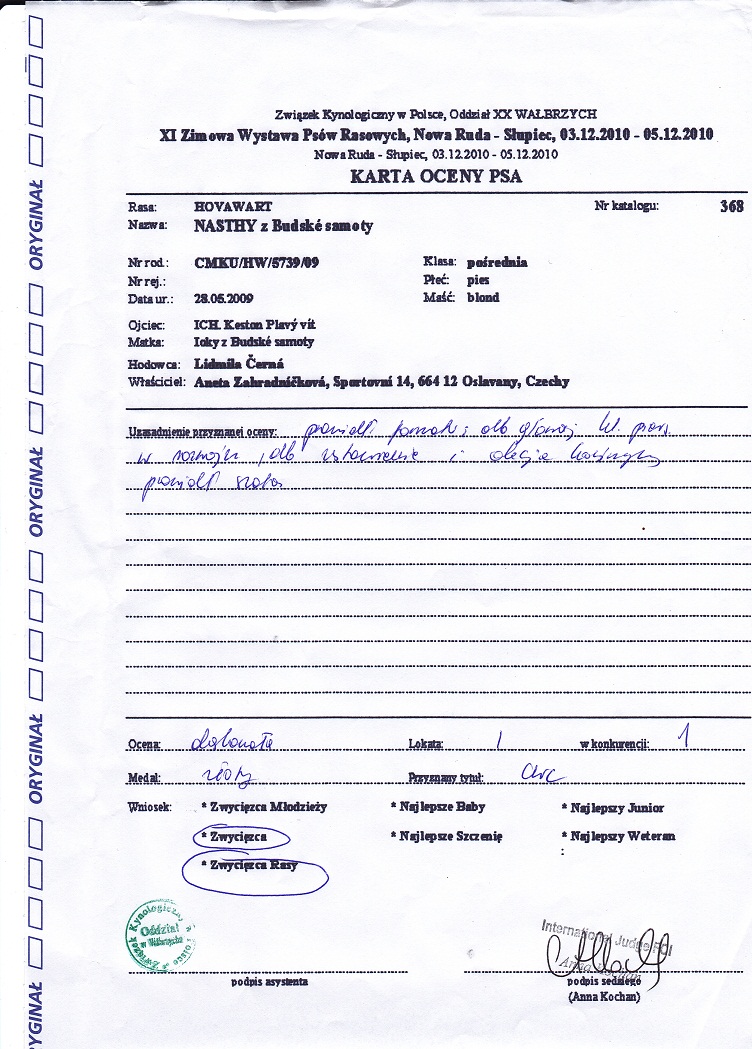 Związek Kynologiczny w Polsce, Oddział XX WAŁBRZYCH
XI Zimowa Wystawa Psów Rasowych, Nowa Ruda - Słupiec, 03.12.2010 - 05.12.2010
Nowa Ruda - Słupiec, 03.12.2010 - 05.12.2010
KARTA OCENY PSA
Rasa: HOVAWART Nr katalogu: 368
Nazwa: NASTHY z Budské samoty
Nr rod.: CMKU/HW/5739/09 Klasa: pośrednia
Nr rej.: Płeć: pies
Data ur.: 28.05.2009 Maść: blond
Ojciec: ICH. Keston Plavý vít
Matka: Ioky z Budské samoty
Hodowca: Lidmila Černá
Właściciel: Aneta Zahradníčková, Sportovní 14, 664 12 Oslavany, Czechy
Uzasadnienie przyznanej oceny:
w i
Ocena: doskonała Lokata: 1 w konkurencji: 1
Medal: złoty Przyznany tytuł: CWC
Wniosek: * Zwycięzca Młodzieży * Najlepsze Baby * Najlepszy Junior
* Zwycięzca * Najlepsze Szczenię * Najlepszy Weteran
:
* Zwycięzca Rasy
Związek Kynologiczny w Polsce
Oddział
w Wałbrzychu
International Judge FCI
Anna Kochan
podpis asystenta podpis sędziego
(Anna Kochan)
ORYGINAŁ
ORYGINAŁ
ORYGINAŁ
YGINAŁ